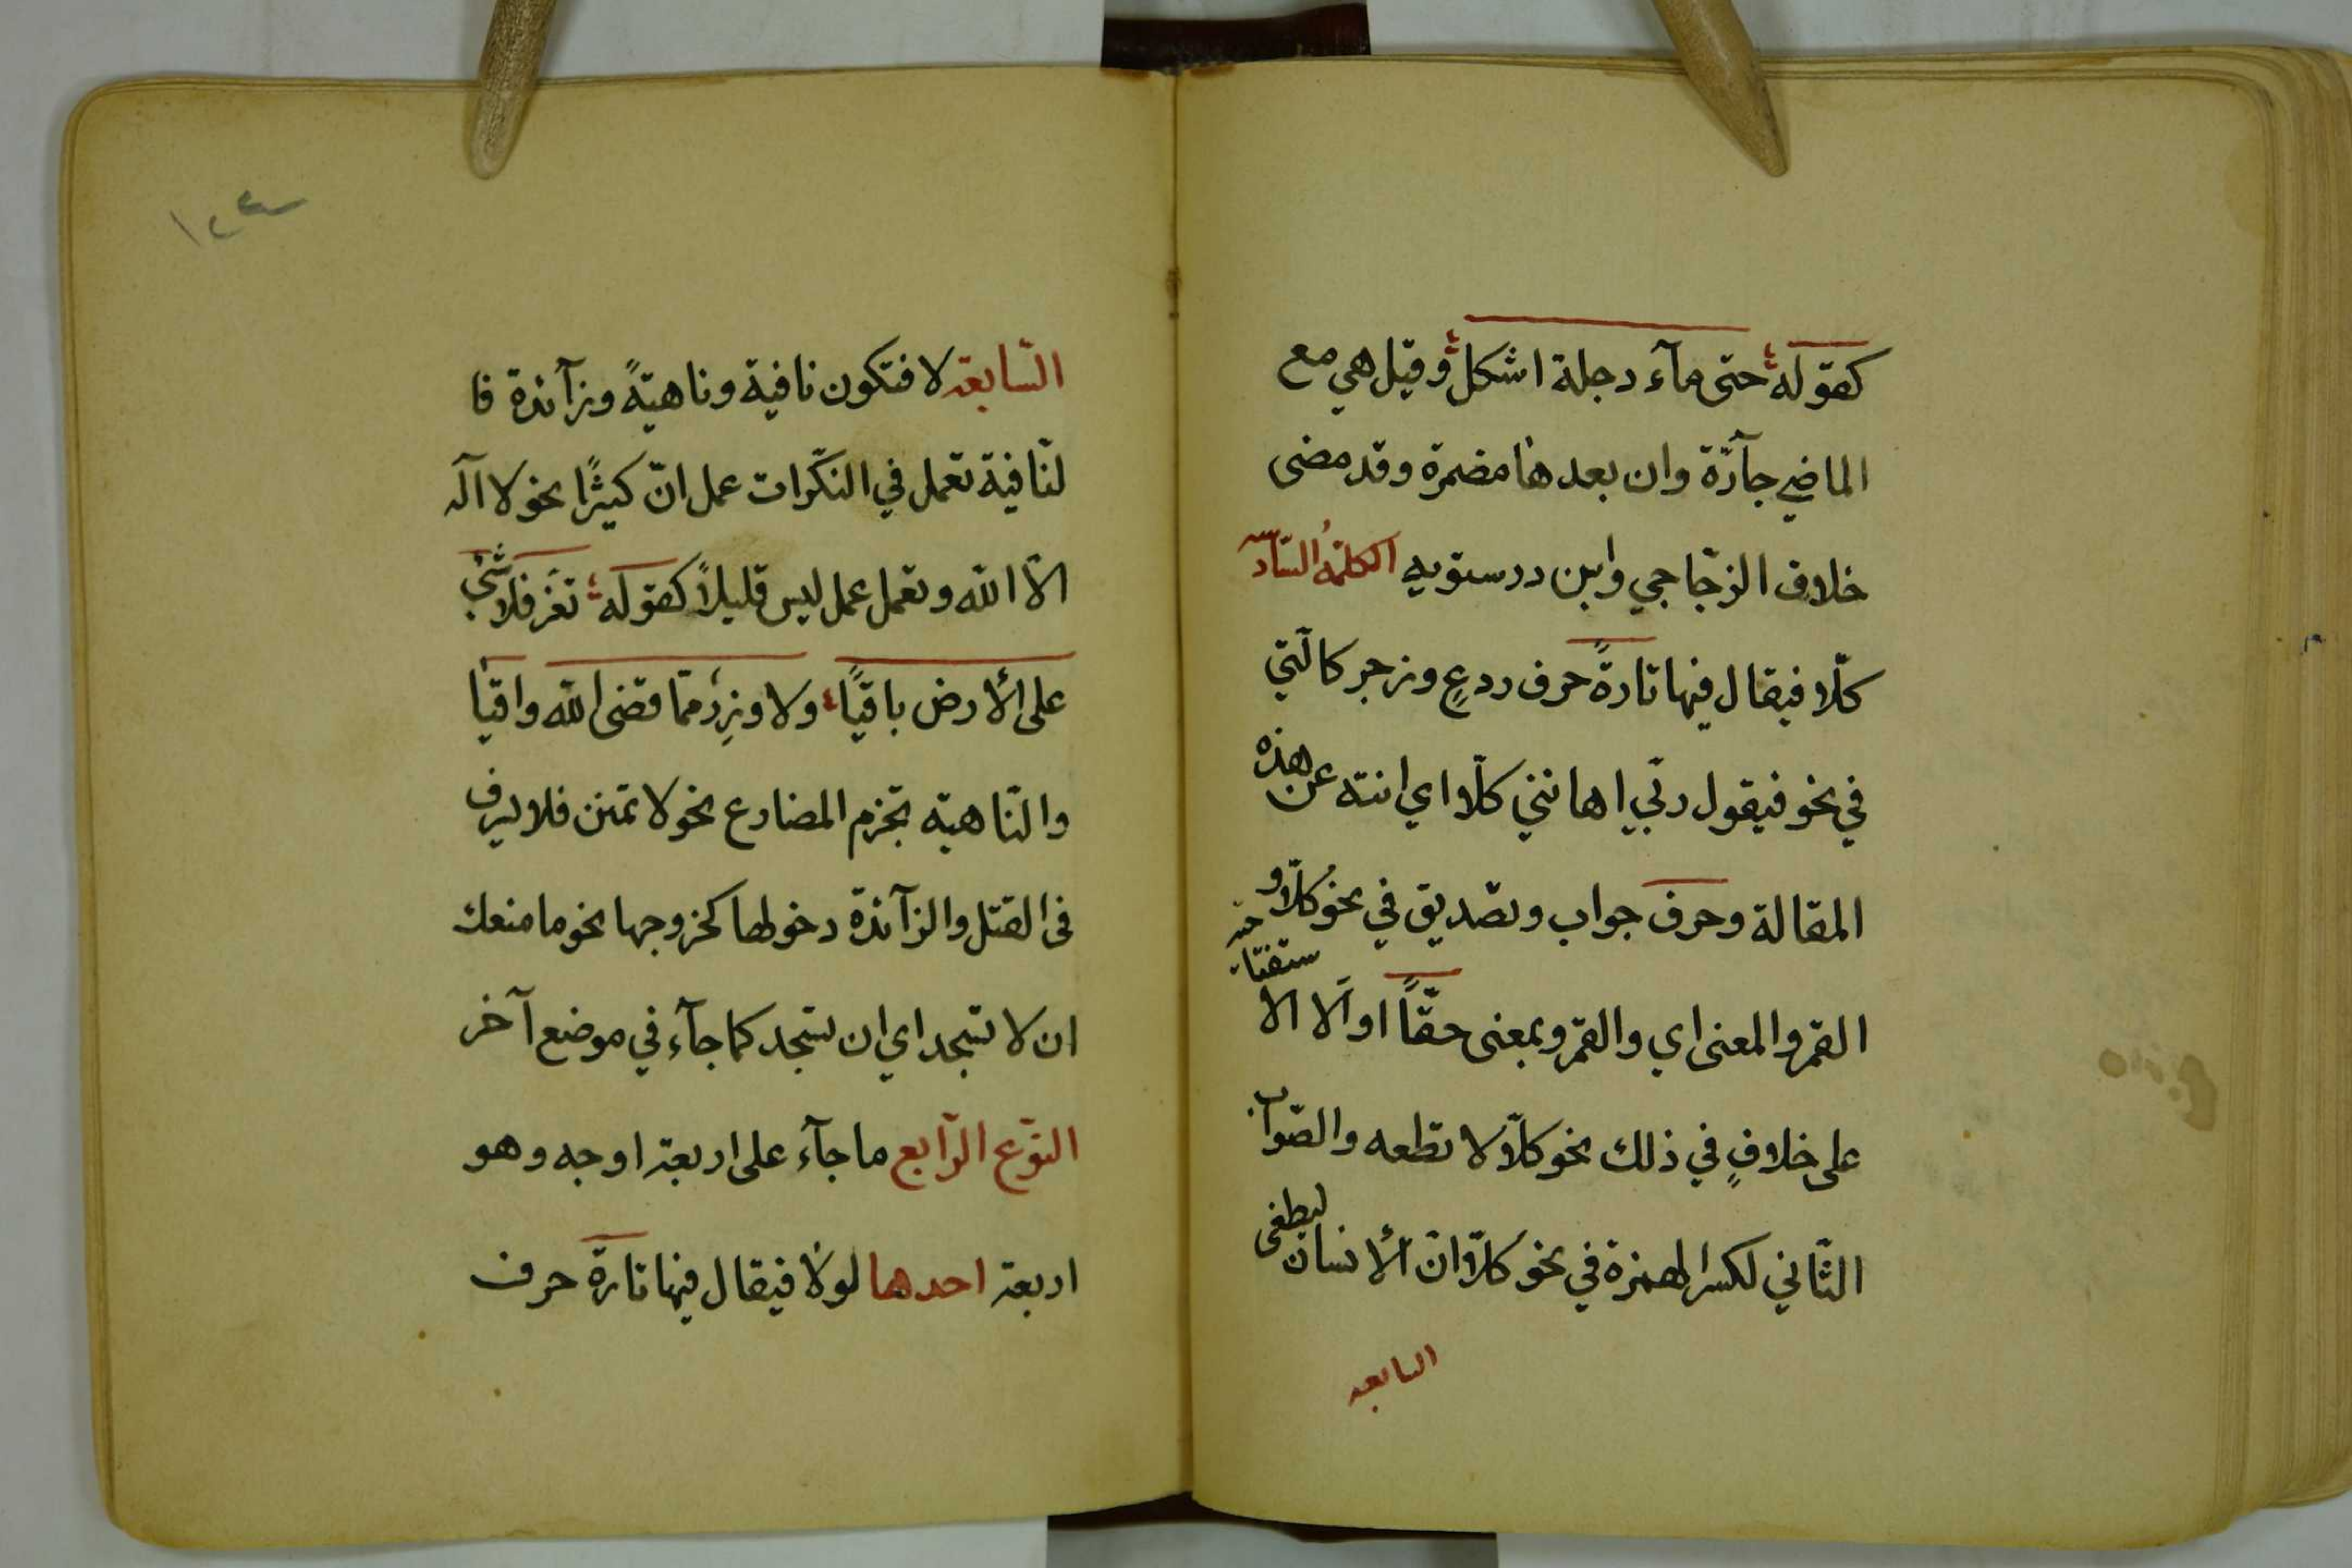 كقوله حتى مآء دجلة اشكل وقيل هي مع
الماضي جآرّة وان بعدها مضمرة وقد مضى
خلاف الزجّاجي وابن درستويه الكلمةُ السّادسـ
كلّا فيقال فيها تارةً حرف ردعٍ وزجر كالّتي
في نحو فيقول ربّي اهانني كلّا اي انته عن هذه
المقالة وحرف جواب وتصديق في نحو كلّا و
القمر والمعنى اي والقمر وبمعنى حقّاً او ألا الا
ستفتا
على خلافٍ في ذلك نحو كلّا لا تطعه والصّواب
الثّاني لكسر الهمزة في نحو كلّا انّ الأنسان ليطغى
السابعة
السّابعة لا فتكون نافية وناهيةً وزآئدة فا
لنّافية تعمل في النكّرات عمل انّ كثيرًا نحو لا آله
الّا الله وتعمل عمل ليس قليلاً كقوله تعزّ فلا شئ
على الأرض باقيًا ولا وزرٌ ممّا قضى الله واقيًا
والنّاهية تجزم المضارع نحو لا تمنن فلا يسرف
في القتل والزآئدة دخولها كخروجها نحو ما منعك
ان لا تسجد اي ان تسجد كما جآء في موضع آخر
النوّع الرّابع ما جآء على اربعة اوجه وهو
اربعة احدها لولا فيقال فيها تارة حرف